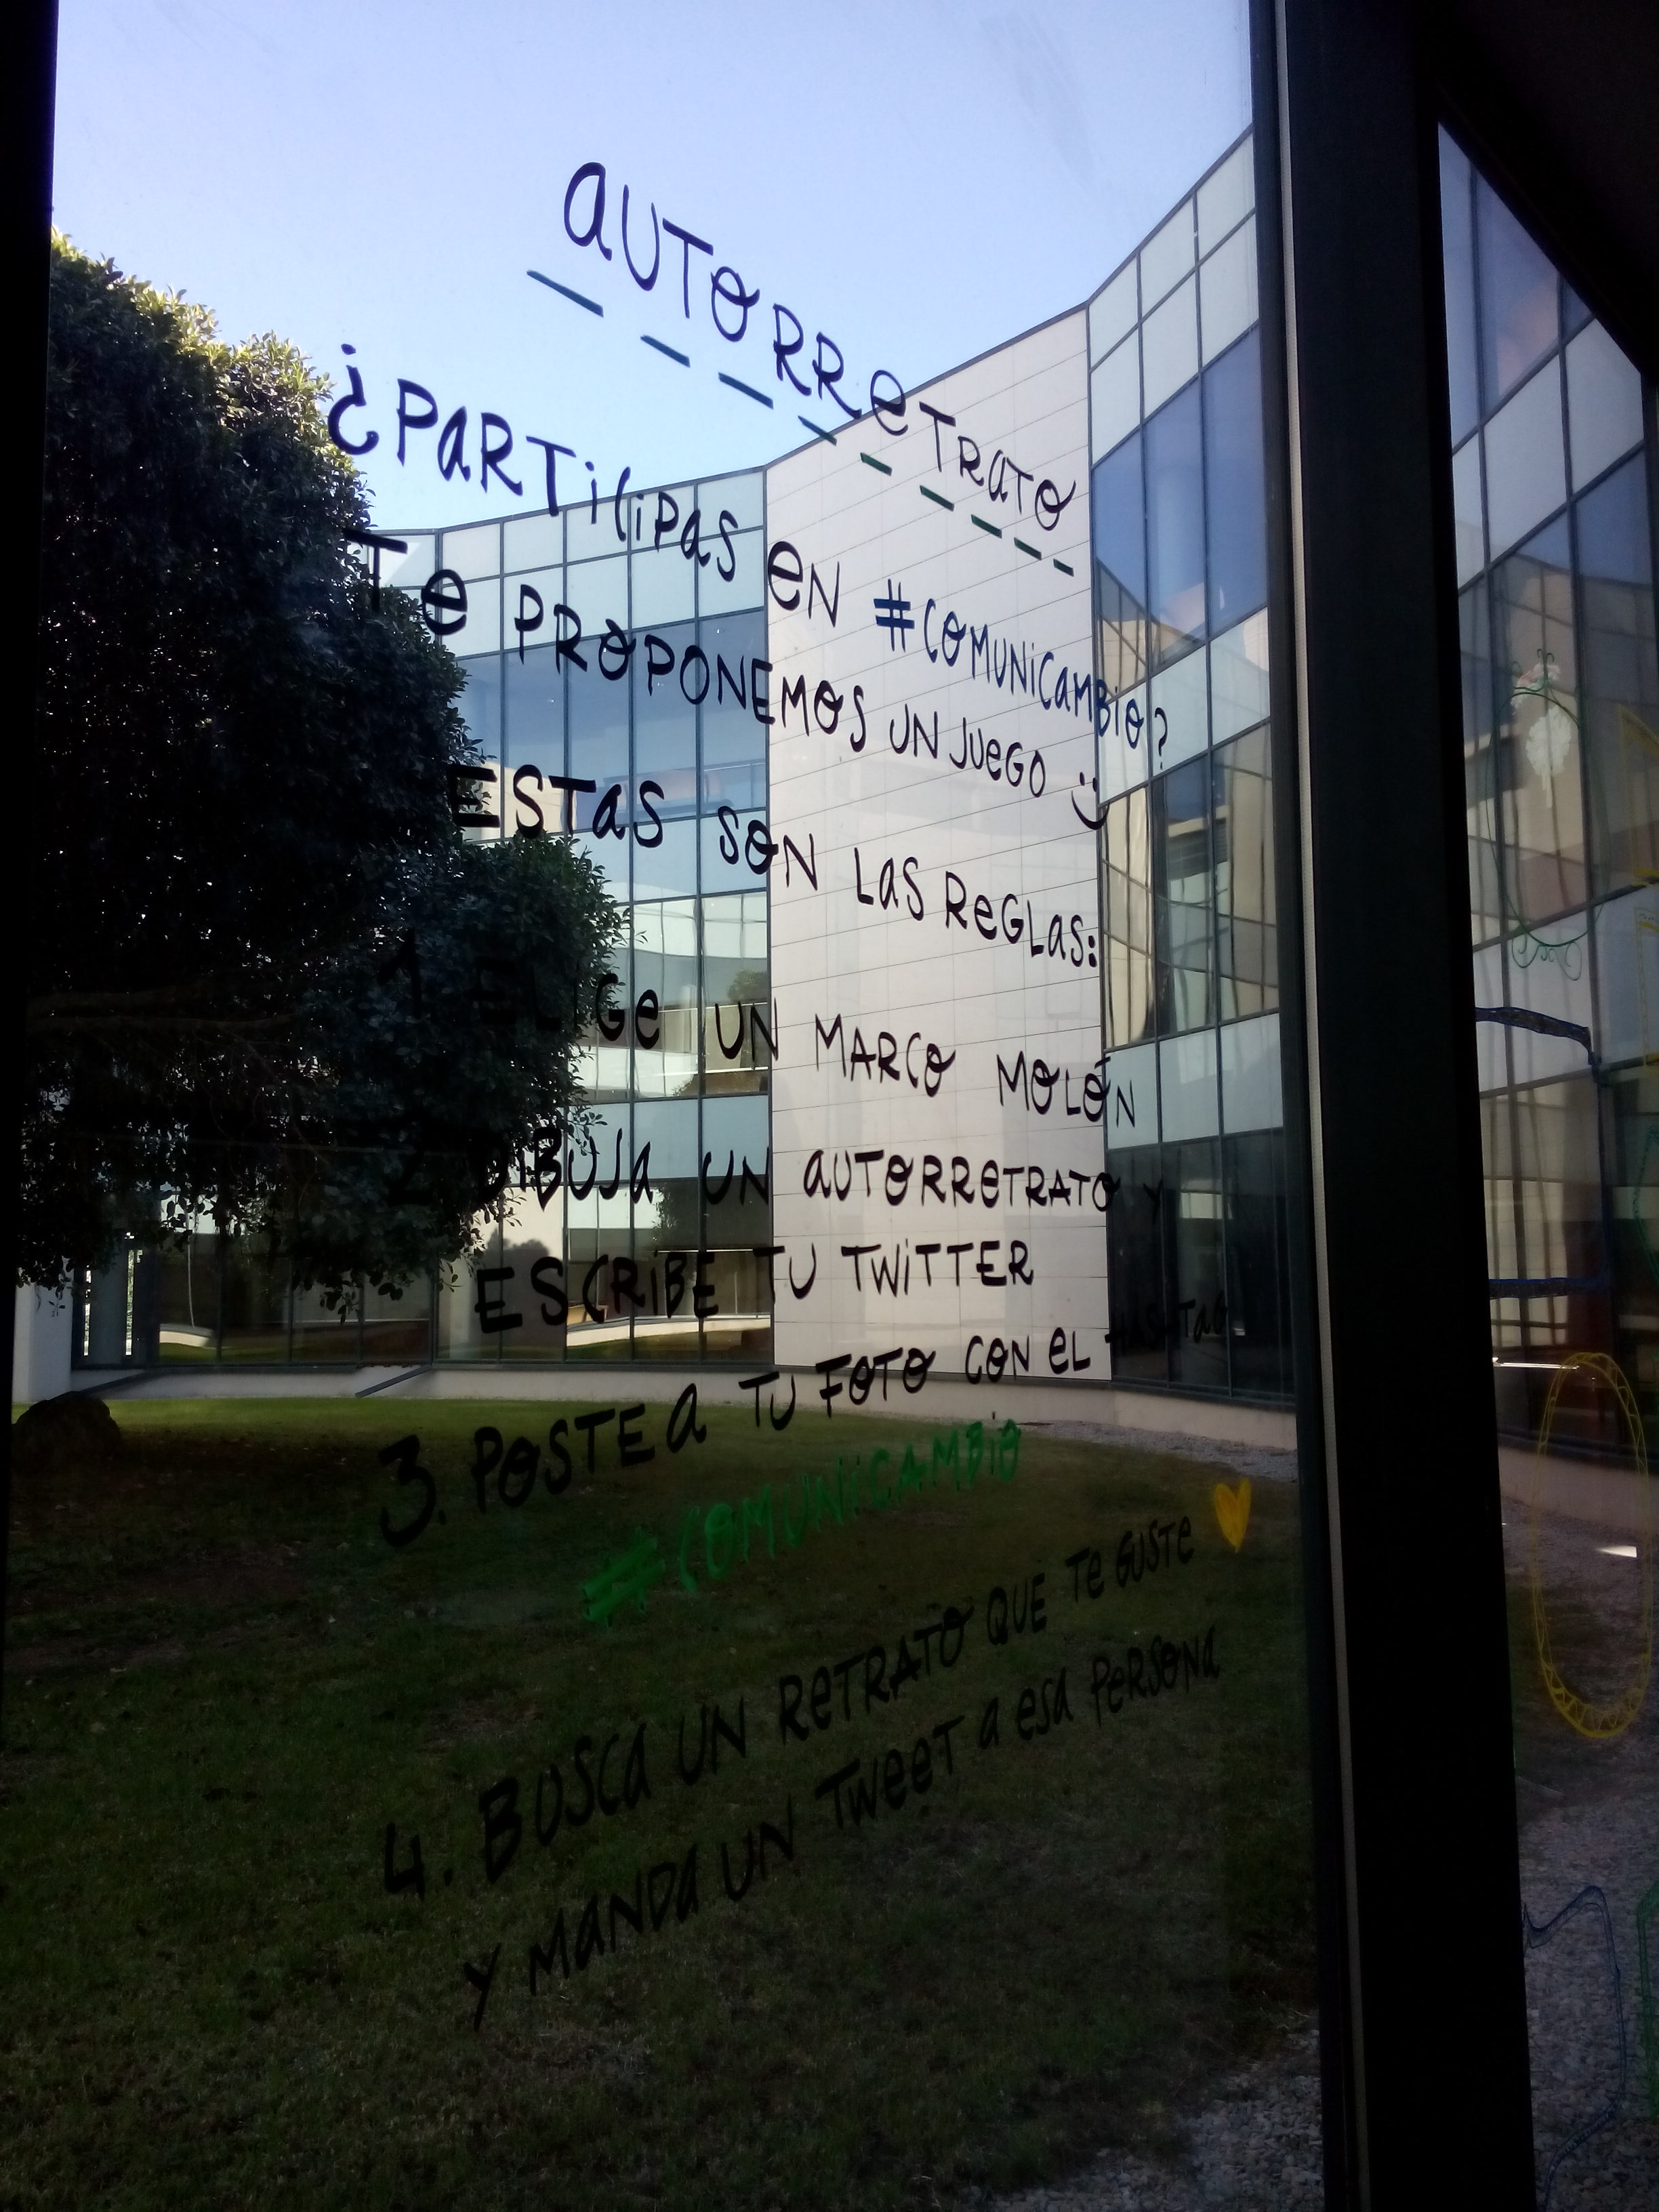 AUTORRETRATO
¿PARTICIPAS EN #COMUNICAMBIO?
TE PROPONEMOS UN JUEGO :)
ESTAS SON LAS REGLAS:
1. ELIGE UN MARCO MOLÓN
2. DIBUJA UN AUTORRETRATO Y
ESCRIBE TU TWITTER
3. POSTEA TU FOTO CON EL HASHTAG
#COMUNICAMBIO
4. BUSCA UN RETRATO QUE TE GUSTE
Y MANDA UN TWEET A ESA PERSONA